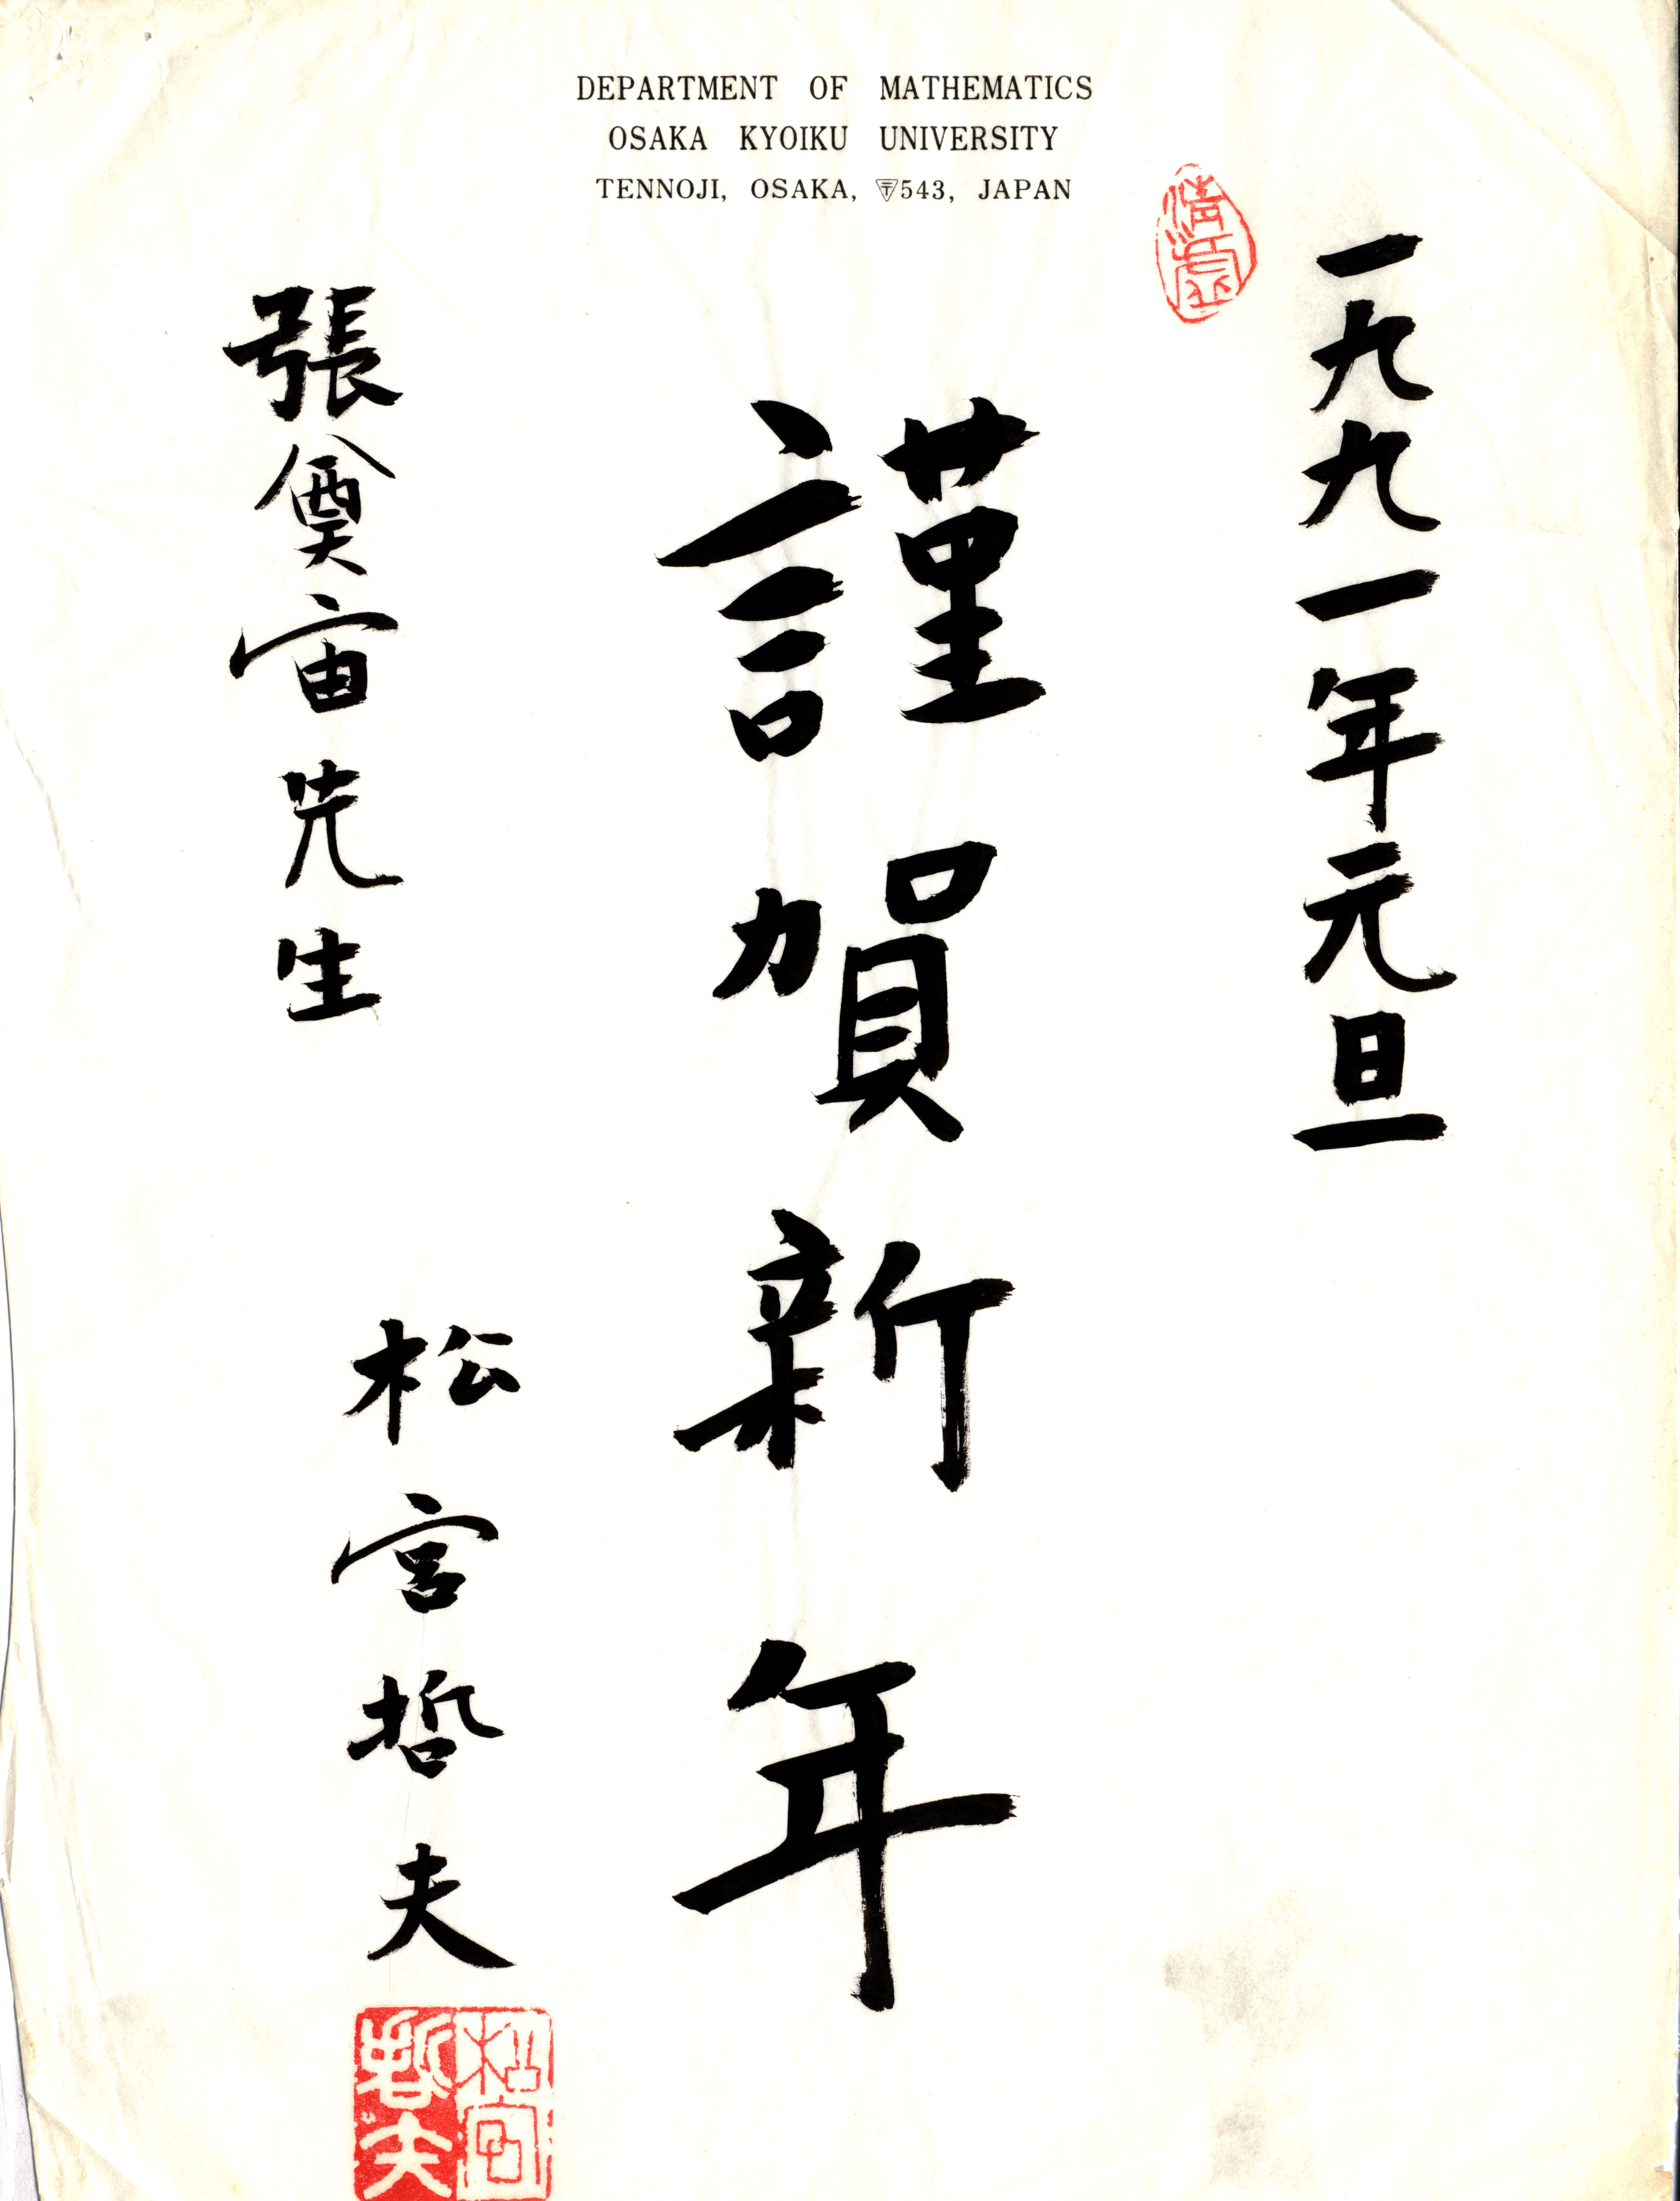 DEPARTMENT OF MATHEMATICS
OSAKA KYOIKU UNIVERSITY
TENNOJI, OSAKA, 〒543, JAPAN
一九九一年元旦
謹賀新年
張奠宙先生
松宮哲夫
松宮
哲夫